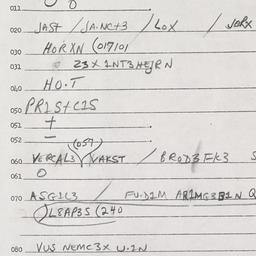 011
020 JAST / JA.NCT3 / LOX / JORX
030 HORXN (017101
031 23 X 1NT3HEJRN
040 HO.T
050 PR1StC1S
051 +
052 –
(057)
060 VERCAL3 YAKST / BROD3FK3 S
061 O
070 ASG1C3 / FU.D1M AR1MG3B1N Q
L8AP3S (240
080 VUS NEMC3X U.2N